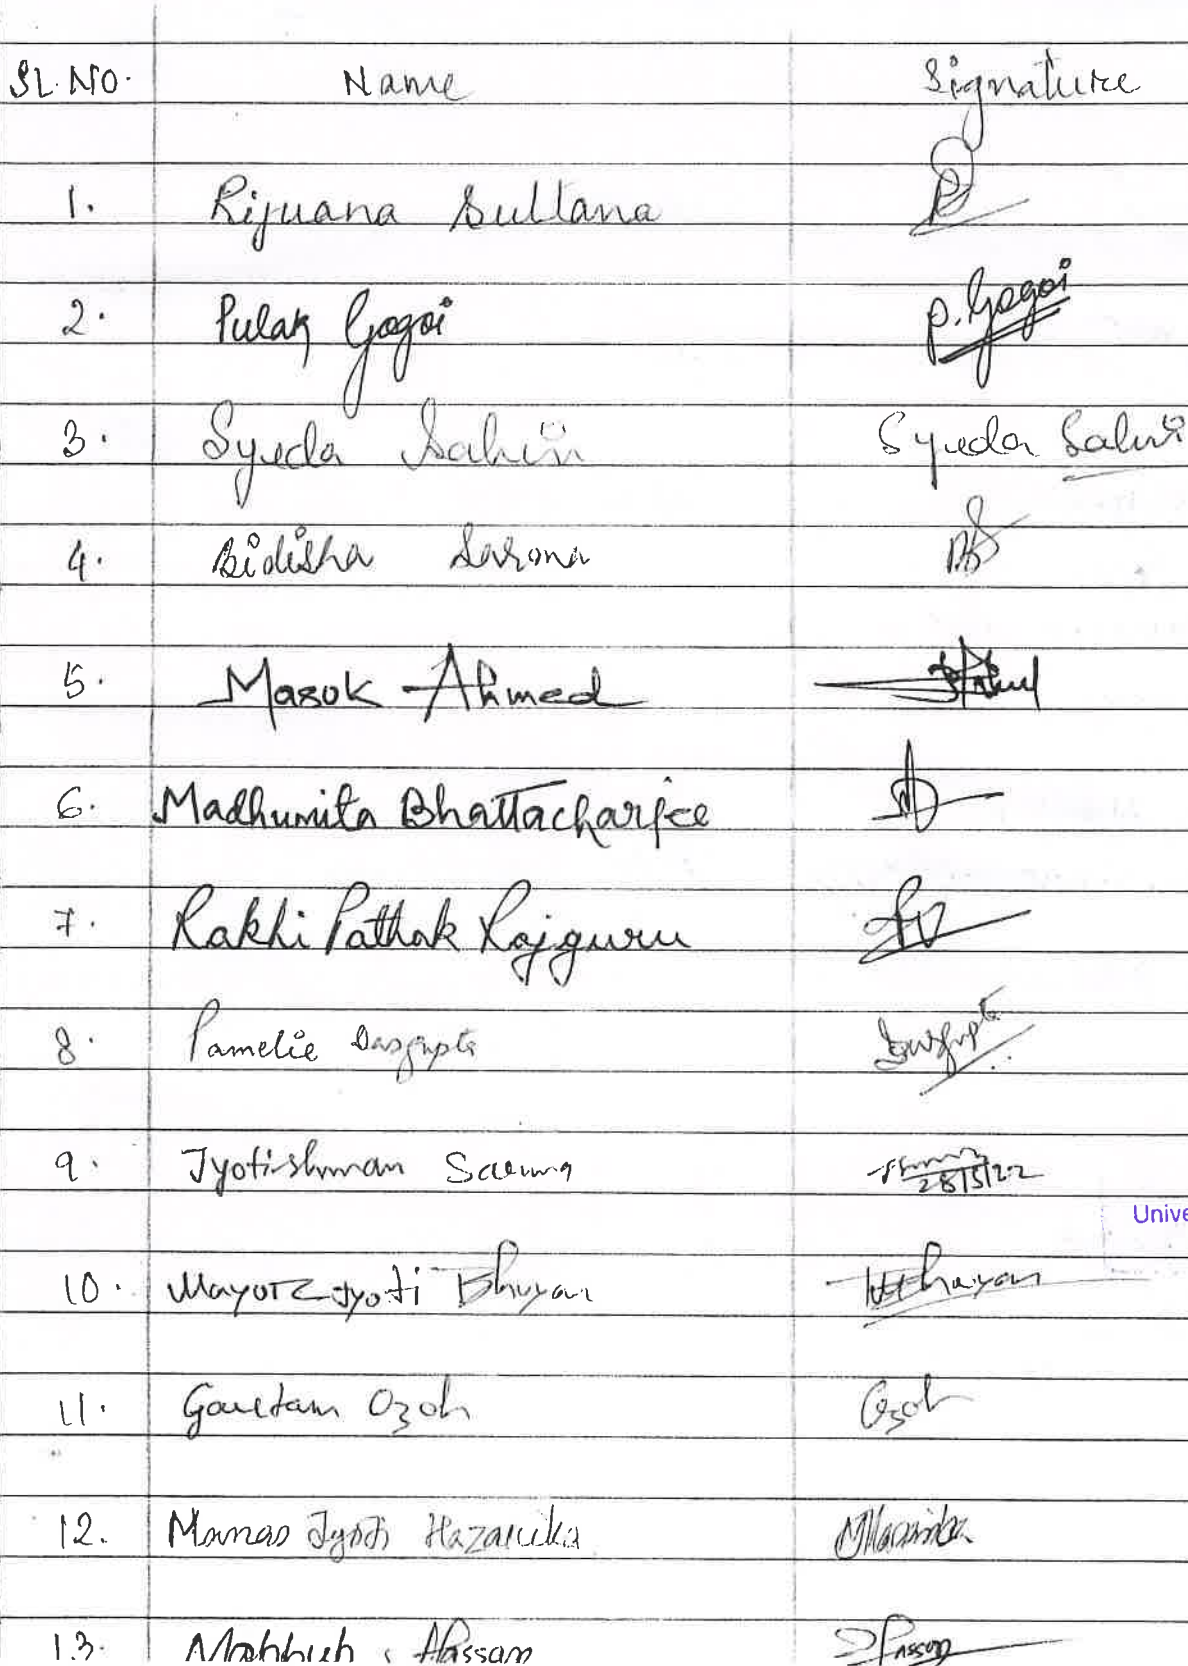 SL.NO. Name Signature
1. Rijuana Sultana
2. Pulak Gogoi P. Gogoi
3. Syeda Sahin Syeda Sahin
4. Bidisha Sarma
5. Masok Ahmed
6. Madhumita Bhattacharjee
7. Rakhi Pathak Rajguru
8. Pamelie Dasgupta Dasgupta
9. Jyotishman Sarma 28/5/22
Unive
10. Jyoti Bhuyan Bhuyan
11. Gautam Ozah Ozah
12. Manas Jyoti Hazarika
13. Hassan Hassan